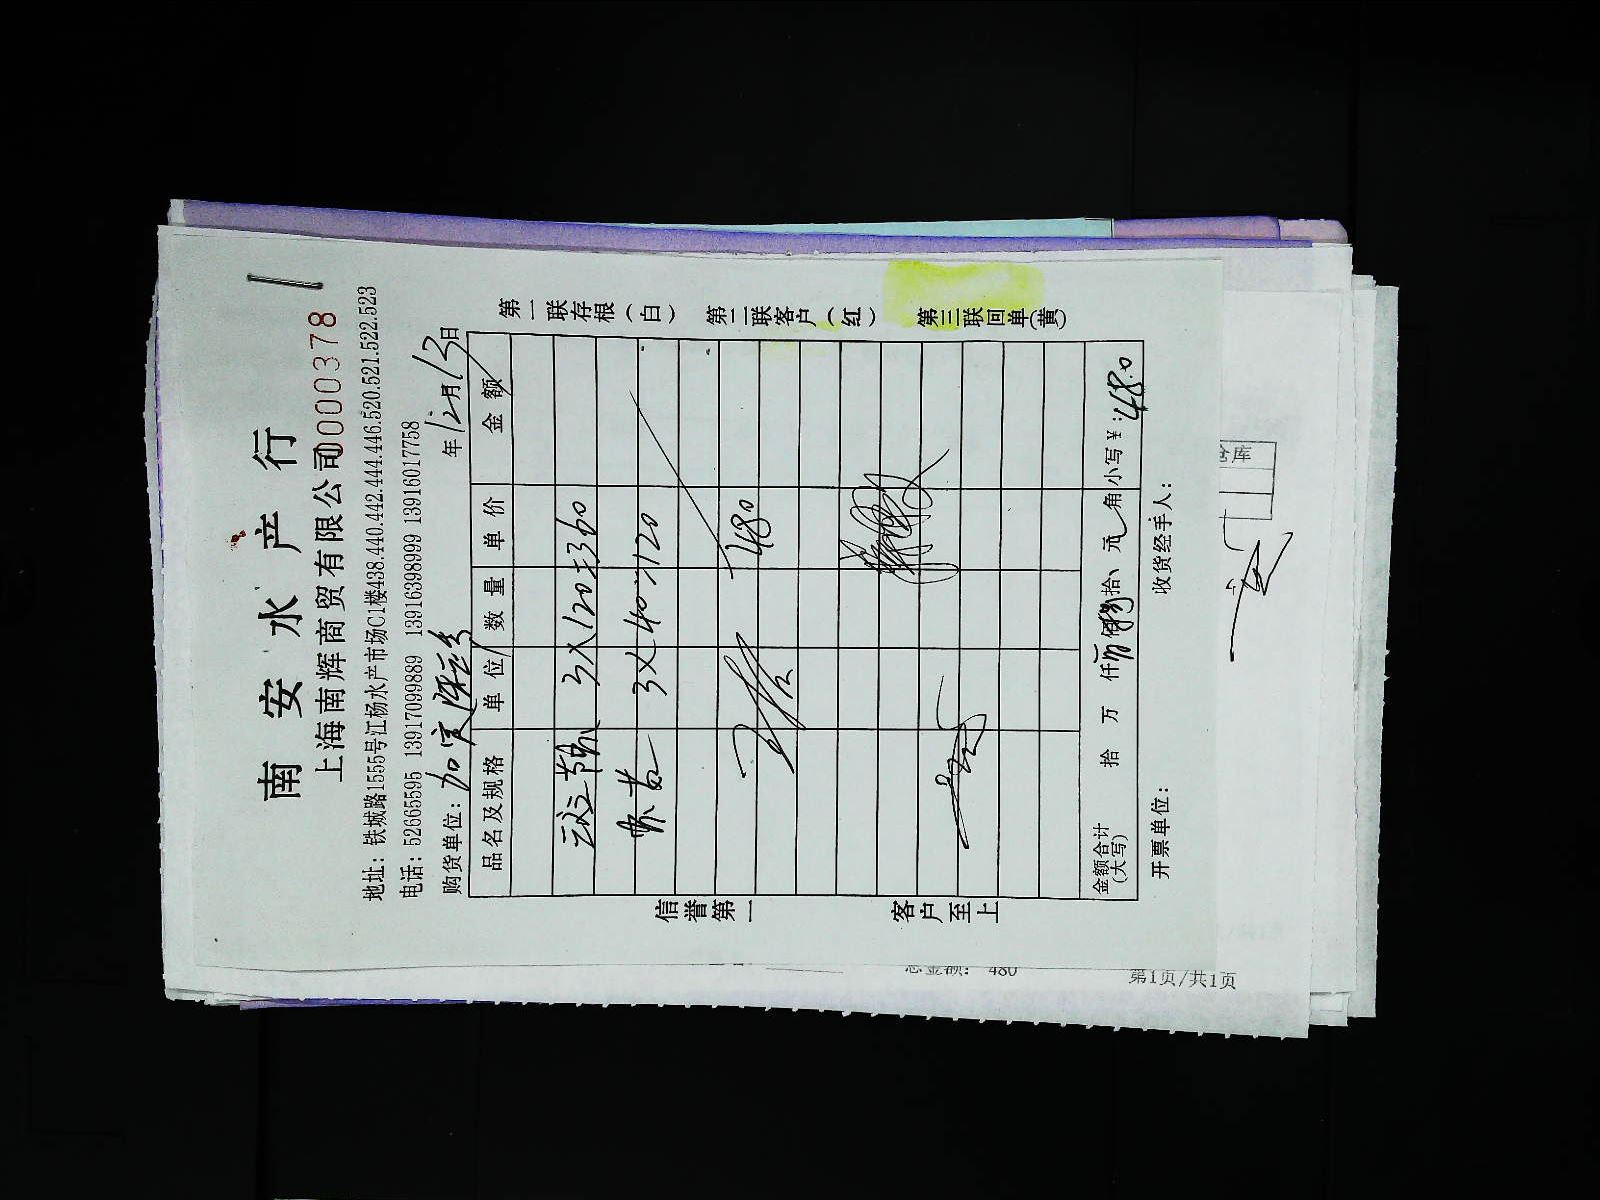 南安水产行
上海南辉商贸有限公司 0000378
地址：铁城路1555号江杨水产市场C1楼438.440.442.444.446.520.521.522.523
电话：52665595 13917099889 13916398999 13916017758
购货单位： 年12月13日
品名及规格 单位 数量 单价 金额
3×120=360
3×40=120
480
金额合计(大写) 拾 万 仟 佰 拾 元 角 小写￥：480
开票单位： 收货经手人：
第一联存根（白） 第二联客户（红） 第三联回单（黄）
信誉第一 客户至上
仓库
总金额： 480
第1页/共1页